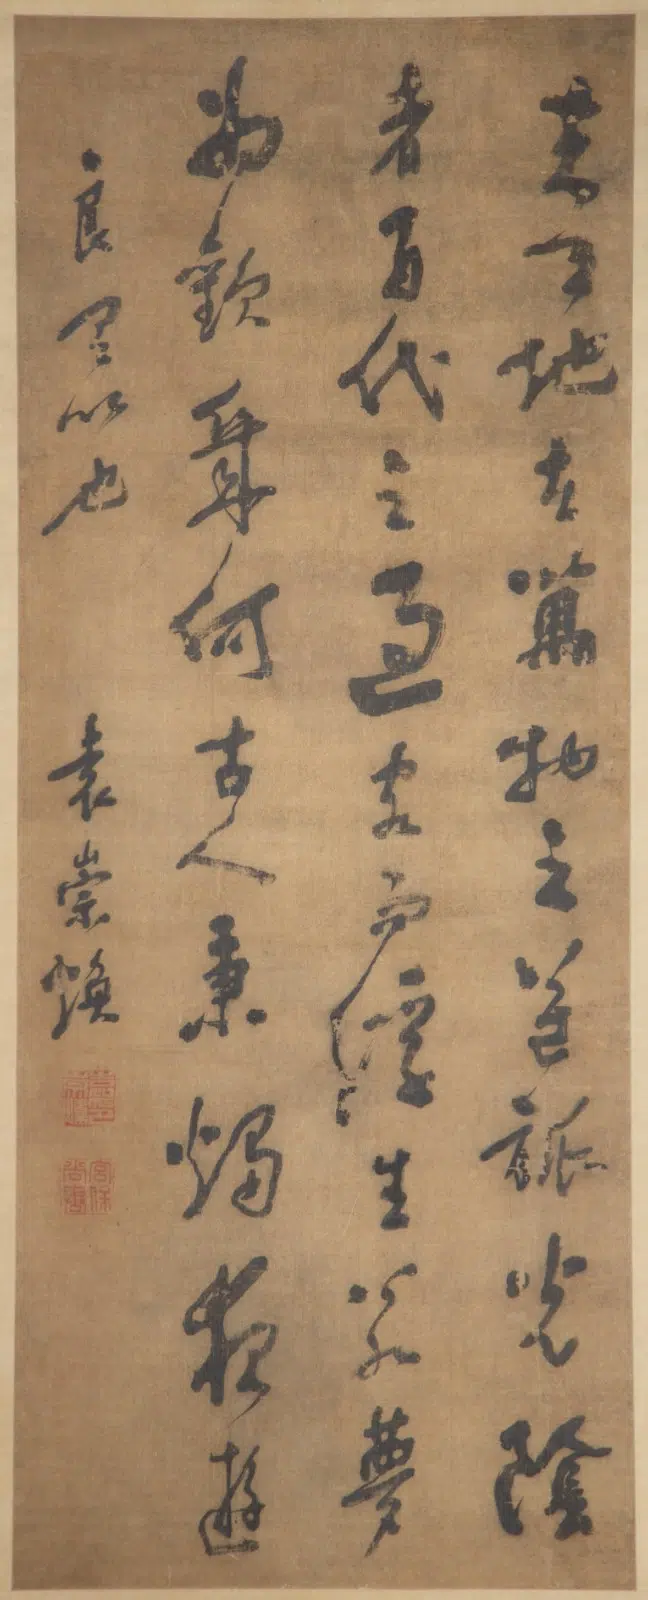 天地者萬物之逆旅光陰
者百代之過客而浮生若夢
為歡幾何古人秉燭夜遊
良有以也 袁崇煥
宮保尚書